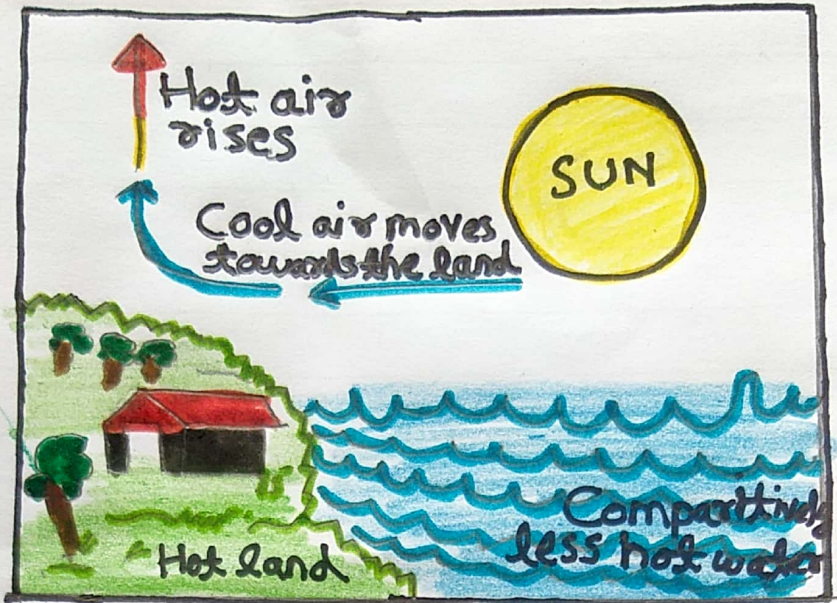 Hot air
rises
SUN
Cool air moves
towards the land
Comparitively
less hot water
Hot land